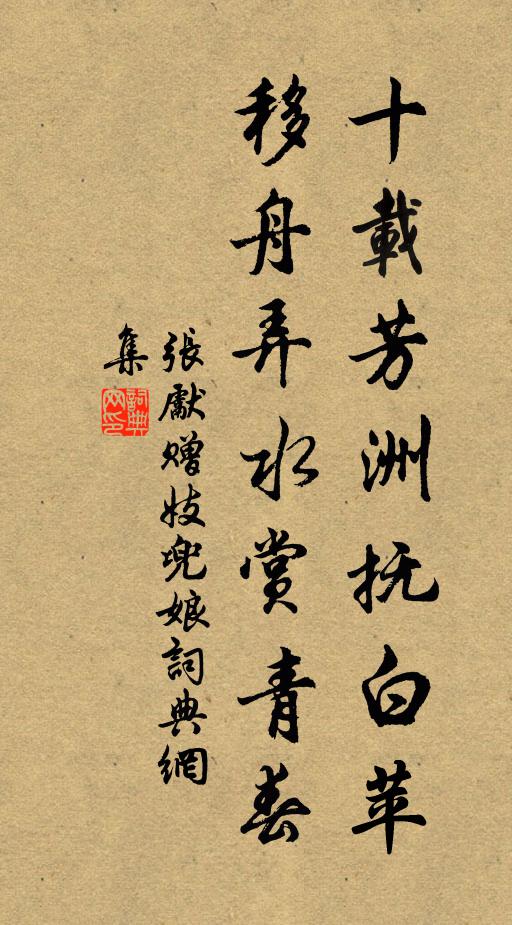 十載芳洲抚白苹
移舟弄水赏青春
張獻赠妓兜娘詞典網
集
詞典網印